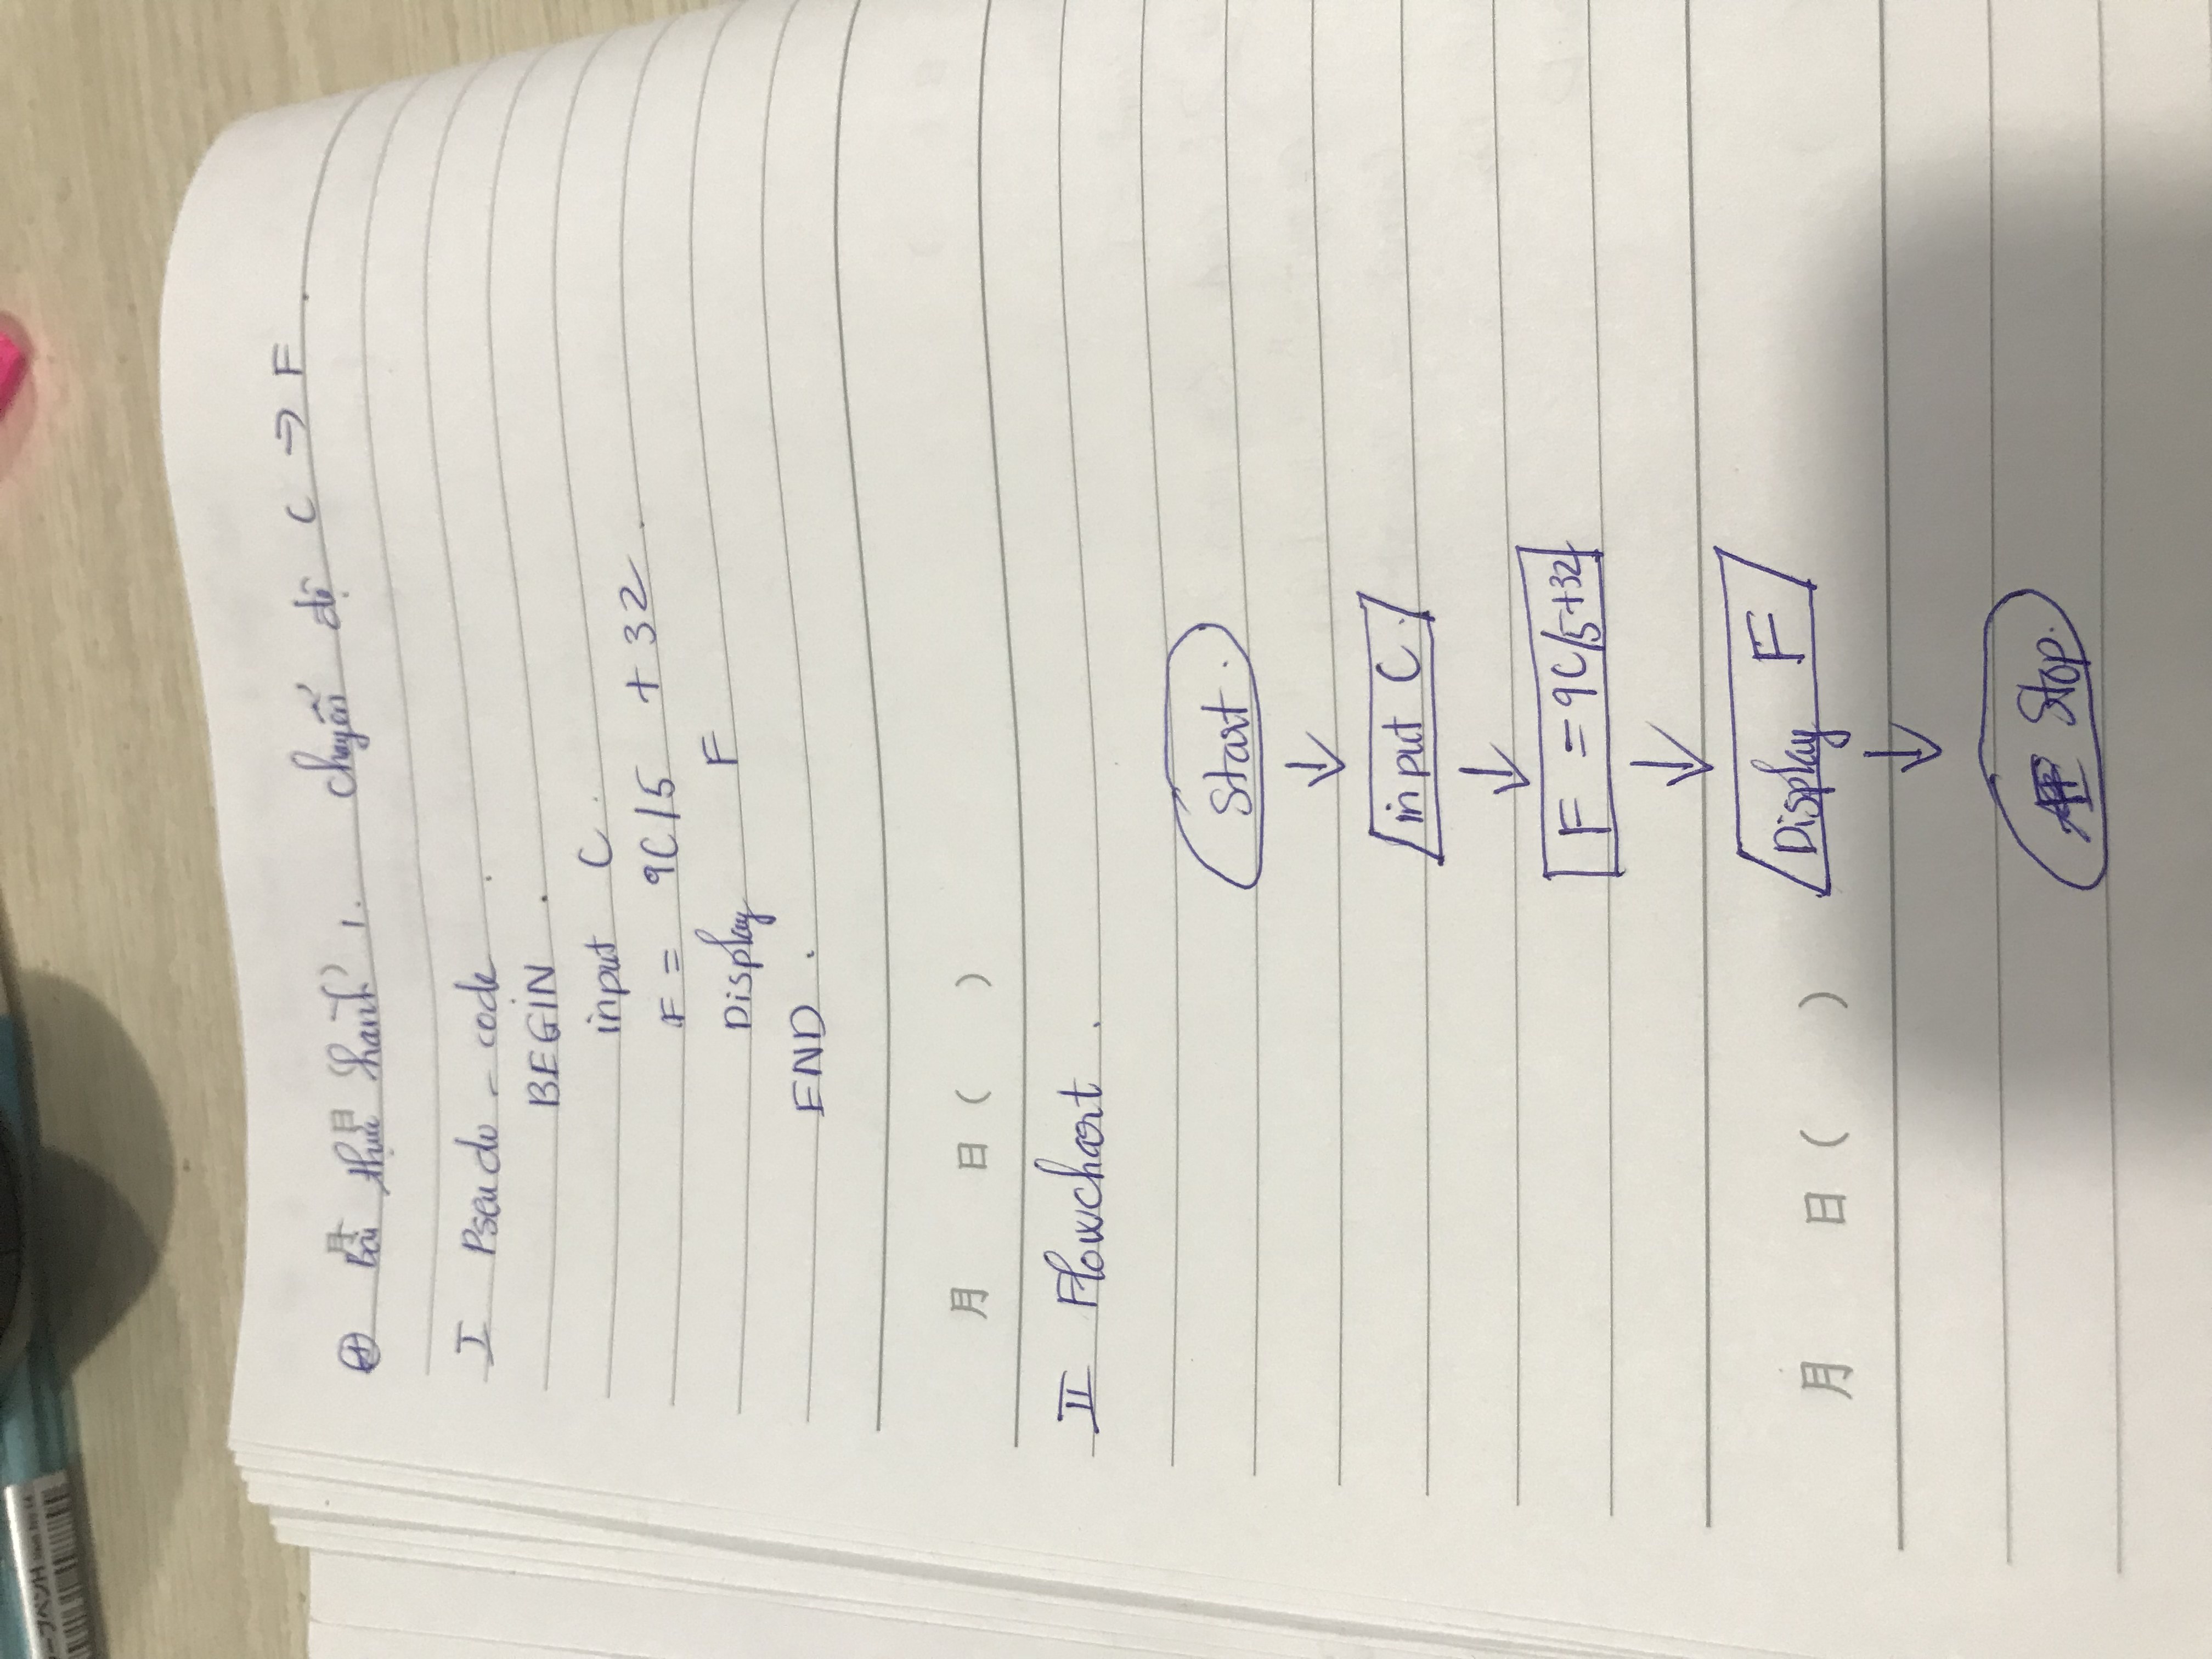 ープペンH
⊕ bài thực hành 1. chuyển độ C → F.
I Pseudo - code.
BEGIN.
input C.
F = 9C/5 + 32.
Display F
END.
月 日 ( )
II Flowchart.
Start.
input C.
F = 9C/5+32
Display F
月 日 ( )
Stop.